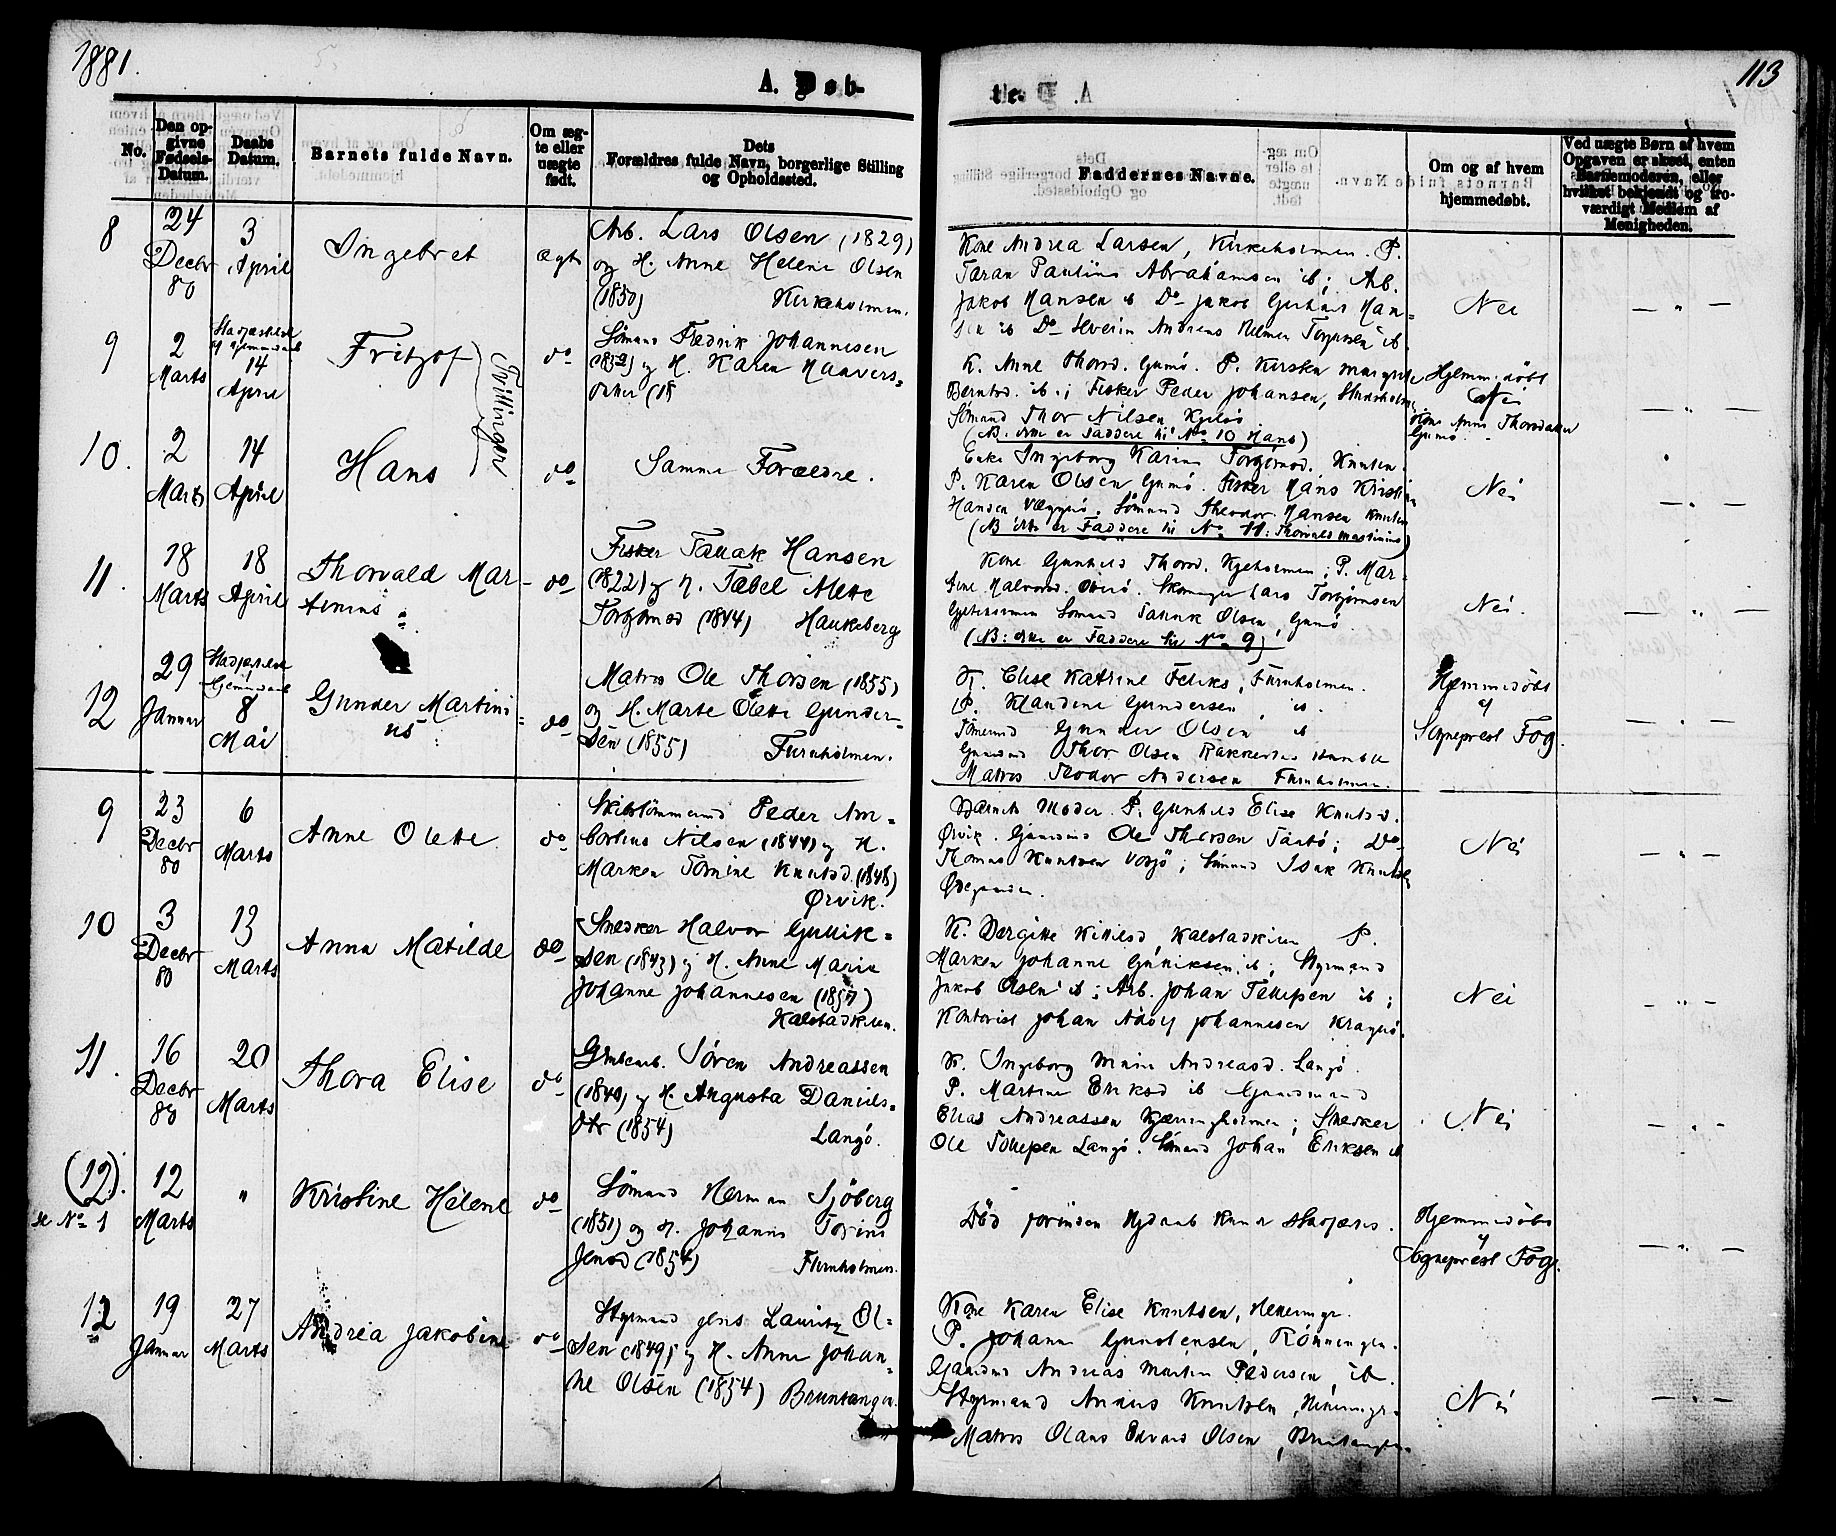 1881.
A. Døb-
te.
113
No.
Den op-
givne
Fødsels-
Datum.
Daabs
Datum.
Barnets fulde Navn.
Om æg-
te eller
uægte
født.
Dets
Forældres fulde Navn, borgerlige Stilling
og Opholdssted.
Faddernes Navne.
Om og af hvem
hjemmedøbt.
Ved uægte Børn af hvem
Opgaven er skeet, enten
Barnemoderen, eller
hvilket bekjendt og tro-
værdigt Medlem af
Menigheden.
8
24
Decbr
80
3
April
Ingebret
ægte
Arb. Lars Olsen (1829)
og H. Anne Helene Olsen
(1850) Kirkeholmen.
Kone Andrea Larsen, Kirkeholmen. P.
Taran Pauline Abrahamsen ib; Arb.
Jakob Hansen ib Do Jakob Gerhard Han-
sen ib Do Severin Andreas Helmer Torgersen ib.
Nei
— " —
9
2
Marts
Stadfæstelse
af Hjemmedaab
14
April
Fritjof
Tvillinger
do
Sømand Fredrik Johannesen
(1852) og H. Karen Haavers-
datter (18
K. Anne Thorsd. Gumø. P. Kirsten Margrete
Berntsd. ib.; Fisker Peder Johansen,
Sømand Thor Nilsen Kjelsø
(NB: disse er Faddere til No 10 Hans)
Hjemmedøbt
Nei
Kone Anne Thorsdatter
Gumø.
— " —
10.
2
Marts
14
April
Hans
do
Samme Forældre.
Enke Ingeborg Karine Torgersd. Knuten.
P. Karen Olsen Gumø. Fisker Hans Kristian
Hansen . Sømand Theodor Hansen Knuten
(NB disse er Faddere til No 11: Thorvald Martinius)
Nei
— " —
11.
18
Marts
18
April
Thorvald Mar-
tinius
do
Fisker Tallak Hansen
(1822) og H. Tabel Mette
Torgersd (1844) Haukeberg
Kone Gunhild Thorsd. Kjeholmen; P. Mar-
tine Halvorsd. . Skomager Lars Torgersen
Sømand Tallak Olsen, Gumø
(NB: disse er Faddere til No 9)
Nei.
— " —
12
29
Januar
Stadfæstelse
af Hjemmedaab
8
Mai
Gunder Martini-
us
do
Matros Ole Thorsen (1855)
og H. Marte Olette Gunder-
sen (1855) Furuholmen.
K. Elise Katrine Feliks, Furuholmen.
P. Klandine Gundersen, ib.
Tømmermd Gunder Olsen ib
Gaardmd Thor Olsen Rakkenes Bamble
Matros Teodor Andersen Furuholmen.
Hjemmedøbt
af
Sogneprest Fog.
— " —
9
23
Decbr
80
6
Marts
Anne Olette
do
Skibstømmermd Peder Am-
bortius Nilsen (1844) og H.
Marken Tomine Knutsd. (1848)
Ørvik.
Barnets Moder. P. Gunhild Elise Knutsd.
Ørvik. Gaardmd Ole Thorsen Taatø; Do
Thomas Knutsen ; Sømand Isak Knutsen
Nei
— " —
10
3
Decbr
80
13
Marts
Anna Matilde
do
Snedker Halvor Gullik-
sen (1843) og H. Anne Marie
Johanne Johannesen (1857)
Kalstadkilen.
K. Bergitte Kittilsd, Kalstadkilen P.
Marken Johanne Gulliksen, ib; Styrmand
Jakob Olsen ib; Arb. Johan Tellefsen ib;
Kontorist Johan Adolf Johannesen Kragerø.
Nei
— " —
11.
16
Decbr
80
20
Marts
Thora Elise
do
Grubearb. Søren Andreassen
(1840) og H. Augusta Daniels-
dtr (1854) Langø.
K. Ingeborg Marie Andreasd. Langø.
P. Martine Eriksd ib Gaardmand
Elias Andreassen Kjæringholmen; Snedker
Ole Tollefsen Langø. Sømand Johan Eriksen ib
Nei
— " —
(12).
se No 1
12
Marts
"
Kristine Helene
do
Sømand Herman Sjöberg
(1851) og H. Johanne Torine
Jensd (1854) Furuholmen.
Død forinden Hjdaab kunde stadfæstes.
Hjemmedøbt
af
Sogneprest Fog.
— " —
12
19
Januar
27
Marts
Andrea Jakobine
do
Styrmand Jens Lauritz Ol-
sen (1849) og H. Anne Johan-
ne Olsen (1854) Bruntangen.
Kone Karen Elise Knutsen,
P. Johanne Gunstensen, Rönningen.
Gaardmd Andreas Martin Pedersen, ib.
Styrmand Knutsen,
Matros Olaus Edvard Olsen, Bruntangen.
Nei
— " —